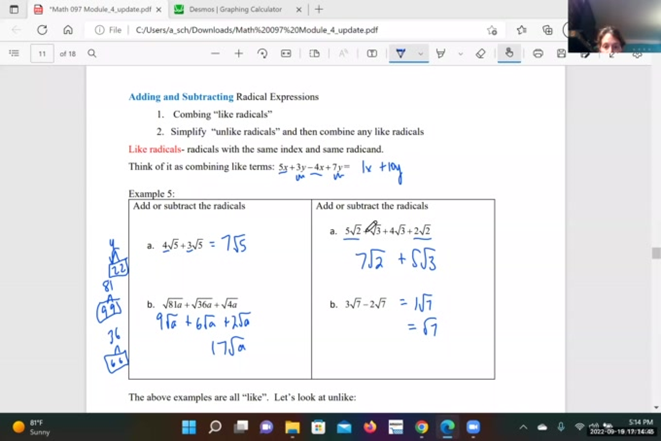 *Math 097_Module_4_update.pdf
Desmos | Graphing Calculator
File
C:/Users/a_sch/Downloads/Math%20097%20Module_4_update.pdf
11 of 18
Adding and Subtracting Radical Expressions
1. Combing “like radicals”
2. Simplify “unlike radicals” and then combine any like radicals
Like radicals- radicals with the same index and same radicand.
Think of it as combining like terms: 5x+3y−4x+7y= 1x + 10y
Example 5:
Add or subtract the radicals
a. 4√5+3√5 = 7√5
b. √81a+√36a+√4a
9√a + 6√a + 2√a
17√a
4
2 2
81
9 9
36
6 6
Add or subtract the radicals
a. 5√2 √3+4√3+2√2
7√2 + 5√3
b. 3√7−2√7 = 1√7
= √7
The above examples are all “like”. Let’s look at unlike:
81°F
Sunny
5:14 PM
2022-09-19 17:14:45